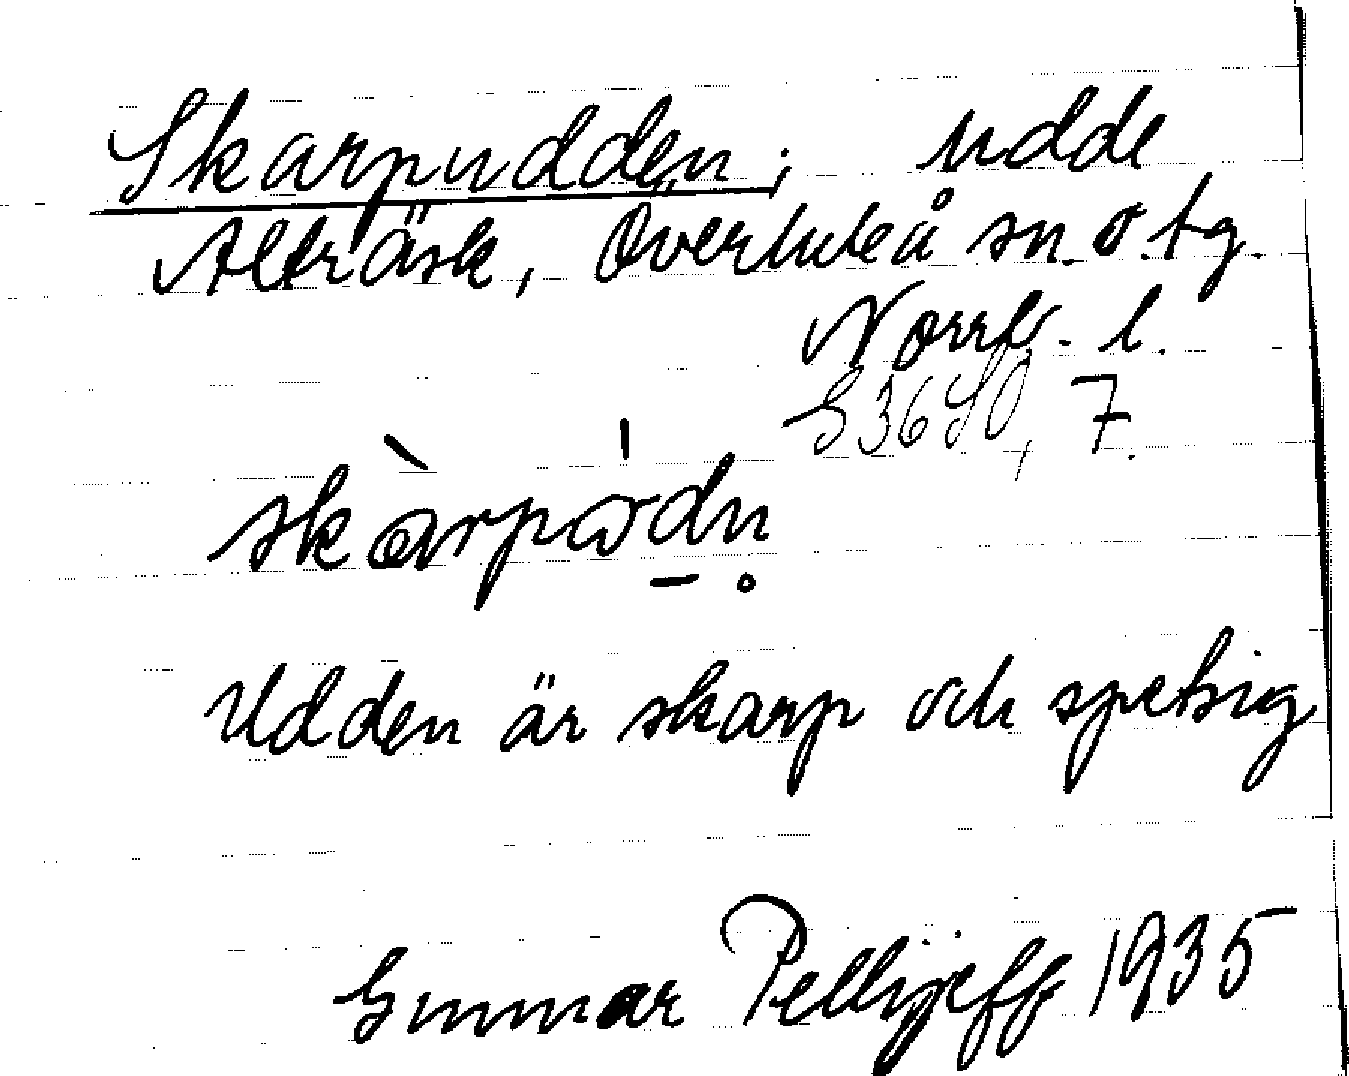 Skarpudden; udde
Alträsk, Överluleå sn o. tg.
Norrb. l.
G3680, 7.
skàrpòdn̥
Udden är skarp och spetsig
Gunnar Pellijeff 1935